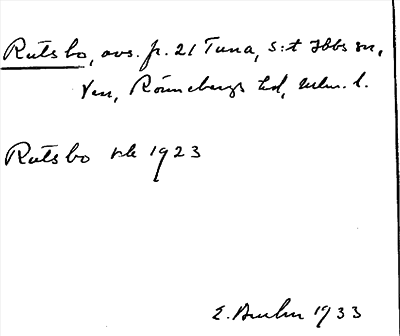 Rutsbo, avs. fr. 21 Tuna, S:t Ibbs sn,
Ven, Rönnebergs hd, Mlm. l.
Rutsbo 1923
E. 1933